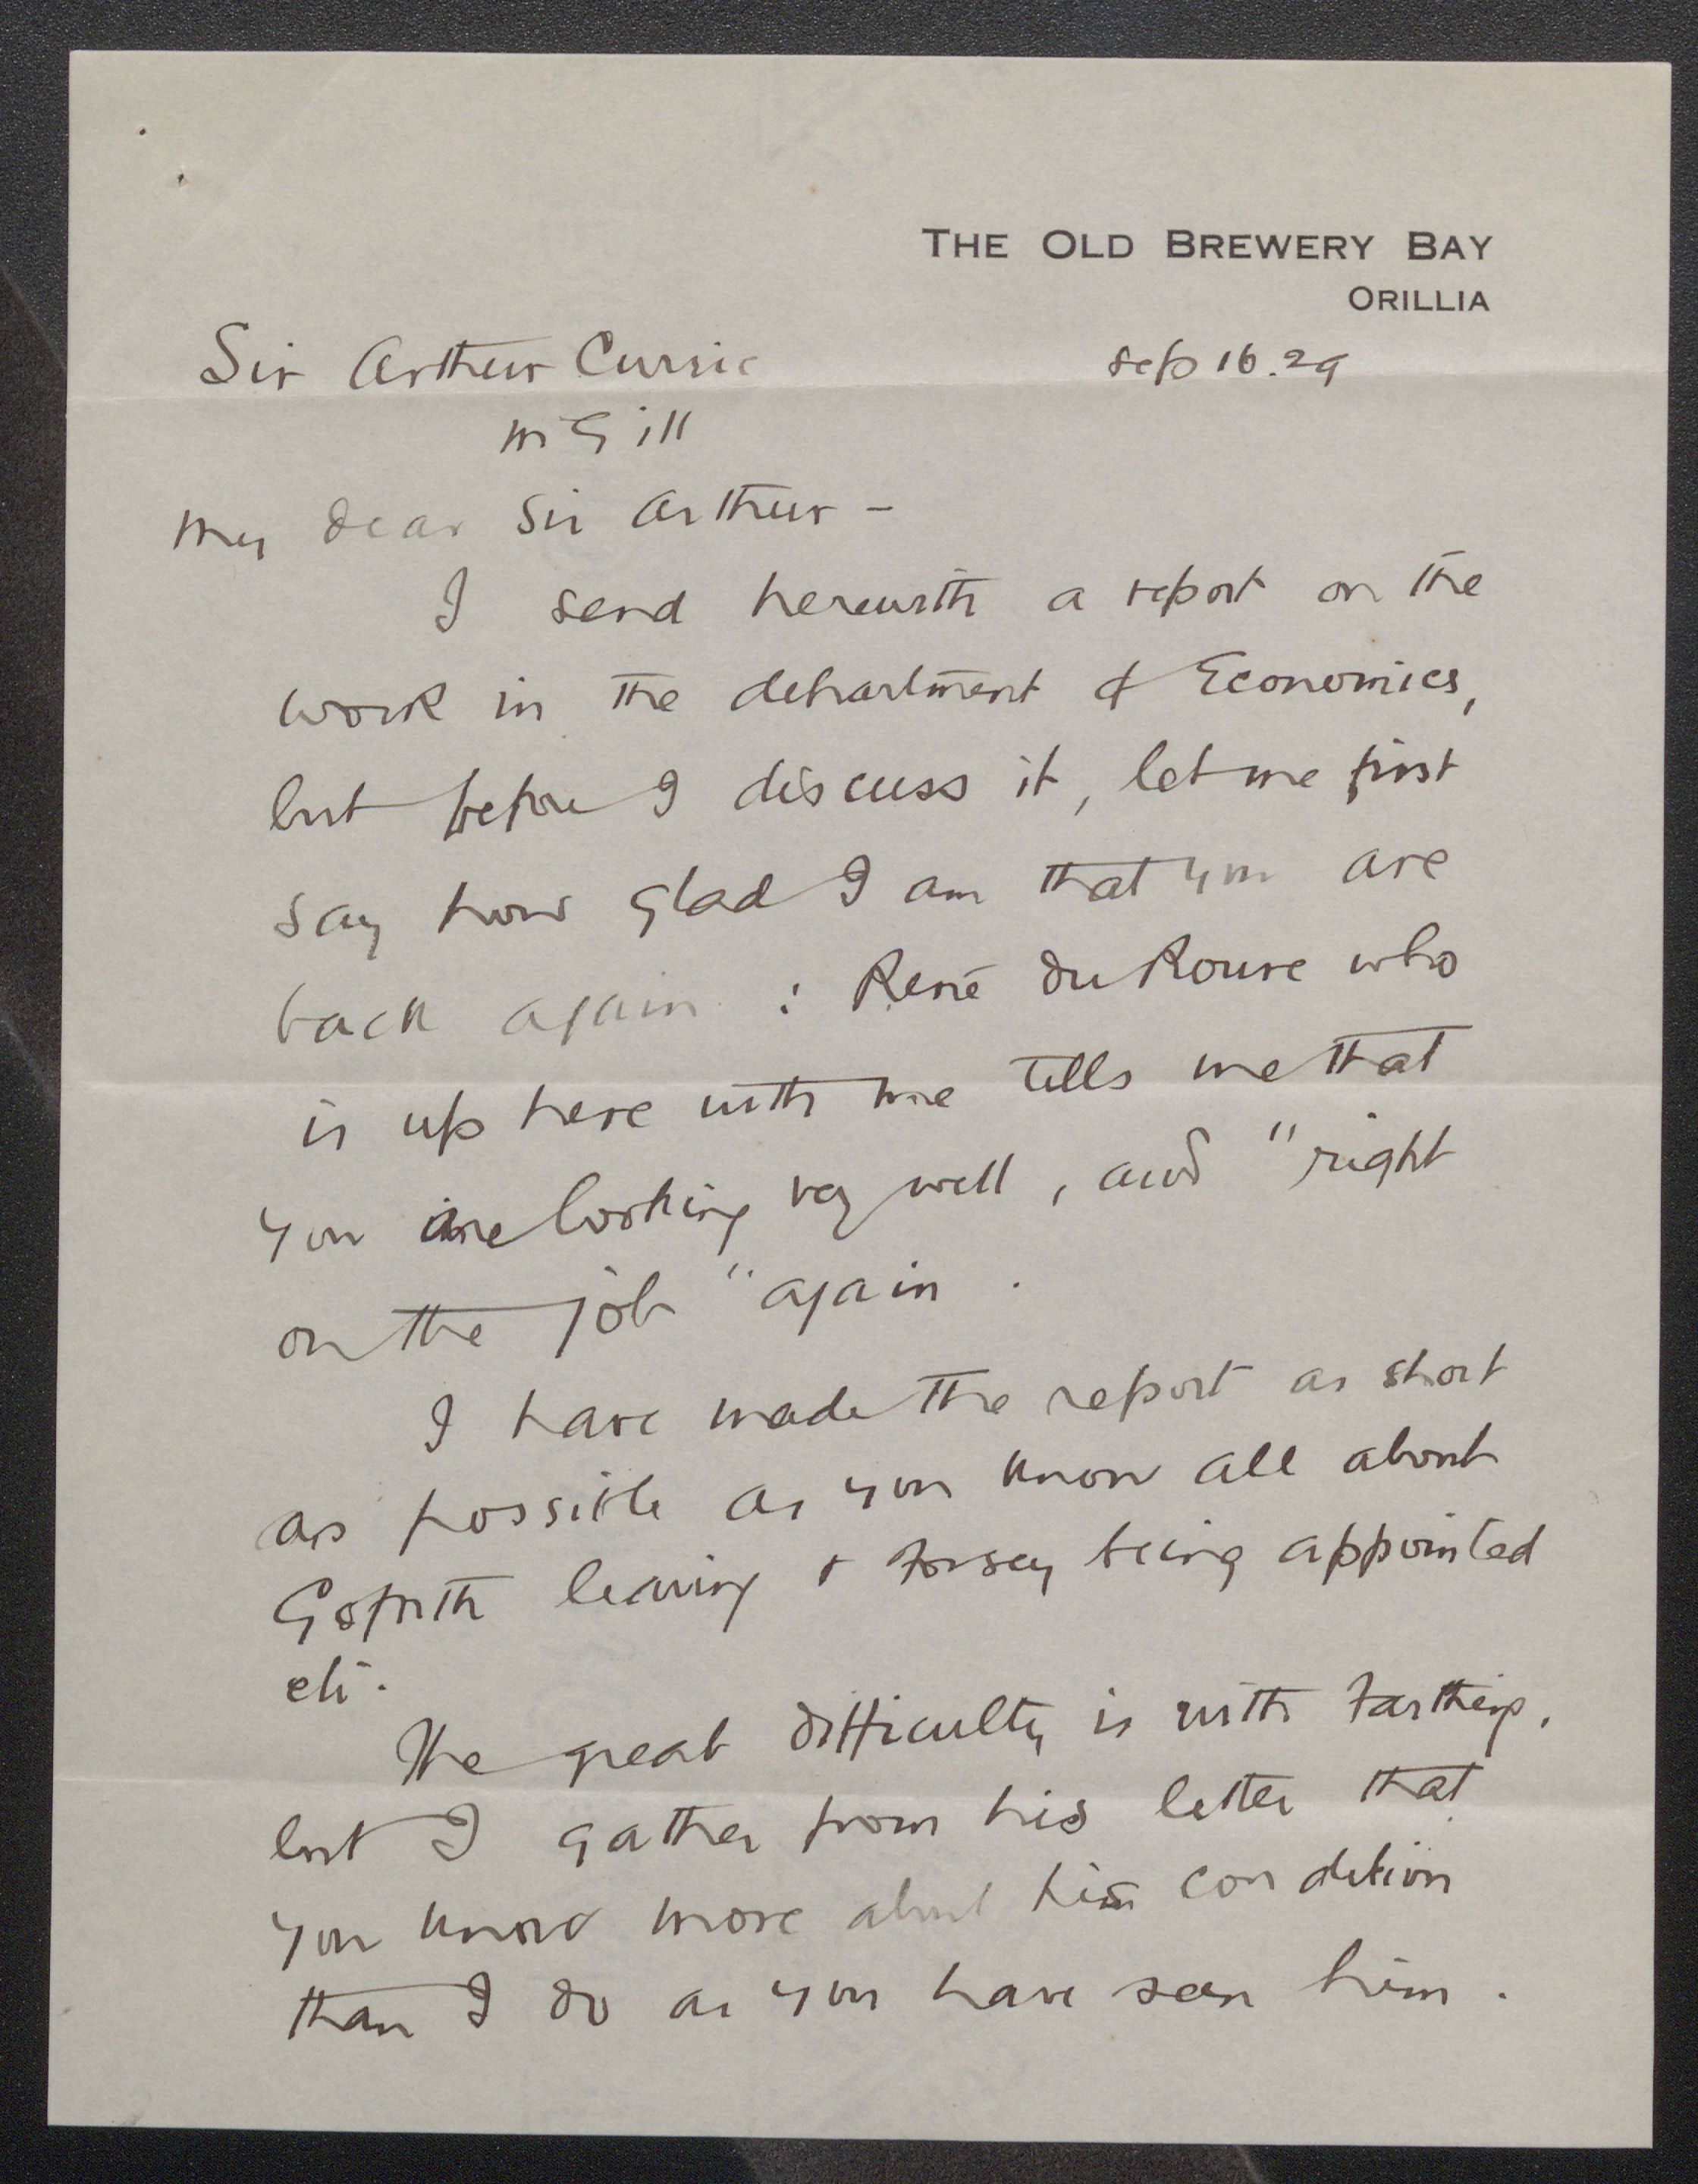 THE OLD BREWERY BAY
ORILLIA
Sir Arthur Currie
sep 16. 29
McGill
My dear Sir Arthur -
I send herewith a report on the
work in the department of Economics,
but before I discuss it, let me first
say how glad I am that you are
back again : René du Roure who
is up here with me tells me that
you are looking very well, and "right
on the job" again.
I have made the report as short
as possible as you know all about
Goforth leaving & Forsey being appointed
etc.
The great difficulty is with Farthing,
but I gather from his letter that
you know more about his condition
than I do as you have seen him.